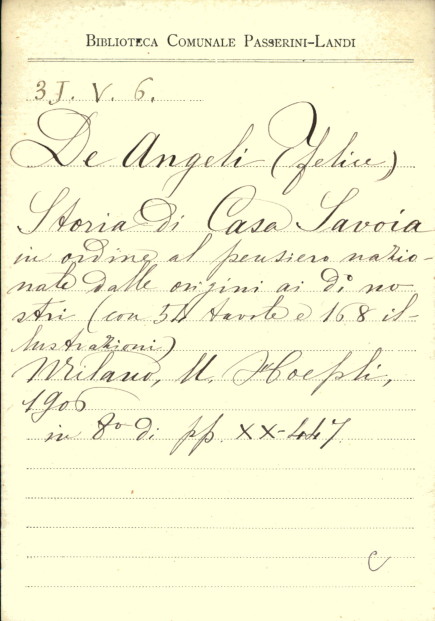 BIBLIOTECA COMUNALE PASSERINI-LANDI
3 J. V. 6.
De Angeli (Felice)
Storia Di Casa Savoia
in ordine al pensiero nazio-
nale dalle origini ai dì no-
stri (con 54 tavole e 168 il-
lustrazioni)
Milano, U. Hoepli,
1906
in 8º di pp. XX-447.
C